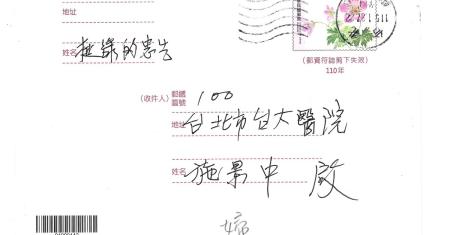 地址
姓名 挺綠的忠告
(郵資符誌剪下失效)
110年
(收件人) 郵遞區號 100
地址 台北市台大醫院
姓名 施景中 啟